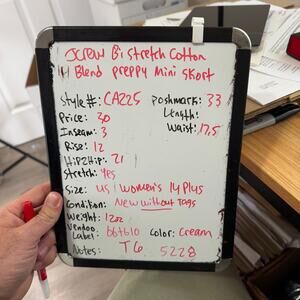 JCREW Bi stretch Cotton
Blend preppy Mini Skort
Style#: CA225 Poshmark: 33
Price: 30 Length:
Inseam: 3 Waist: 17.5
Rise: 12
Hip2Hip: 21
Stretch: Yes
Size: US | Women's 14 Plus
Condition: New without Tags
Weight: 12oz
Vendoo
Label: b6t610 Color: Cream
Notes: T6 5228